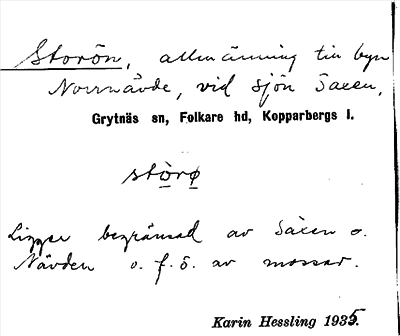 Storön, allmänning till byn
Norrnävde, vid sjön Saxen,
Grytnäs sn, Folkare hd, Kopparbergs l.
stòrø
Ligger begränsad av Saxen o.
Nävden o. f. ö. av mossar.
Karin Hessling 1935.